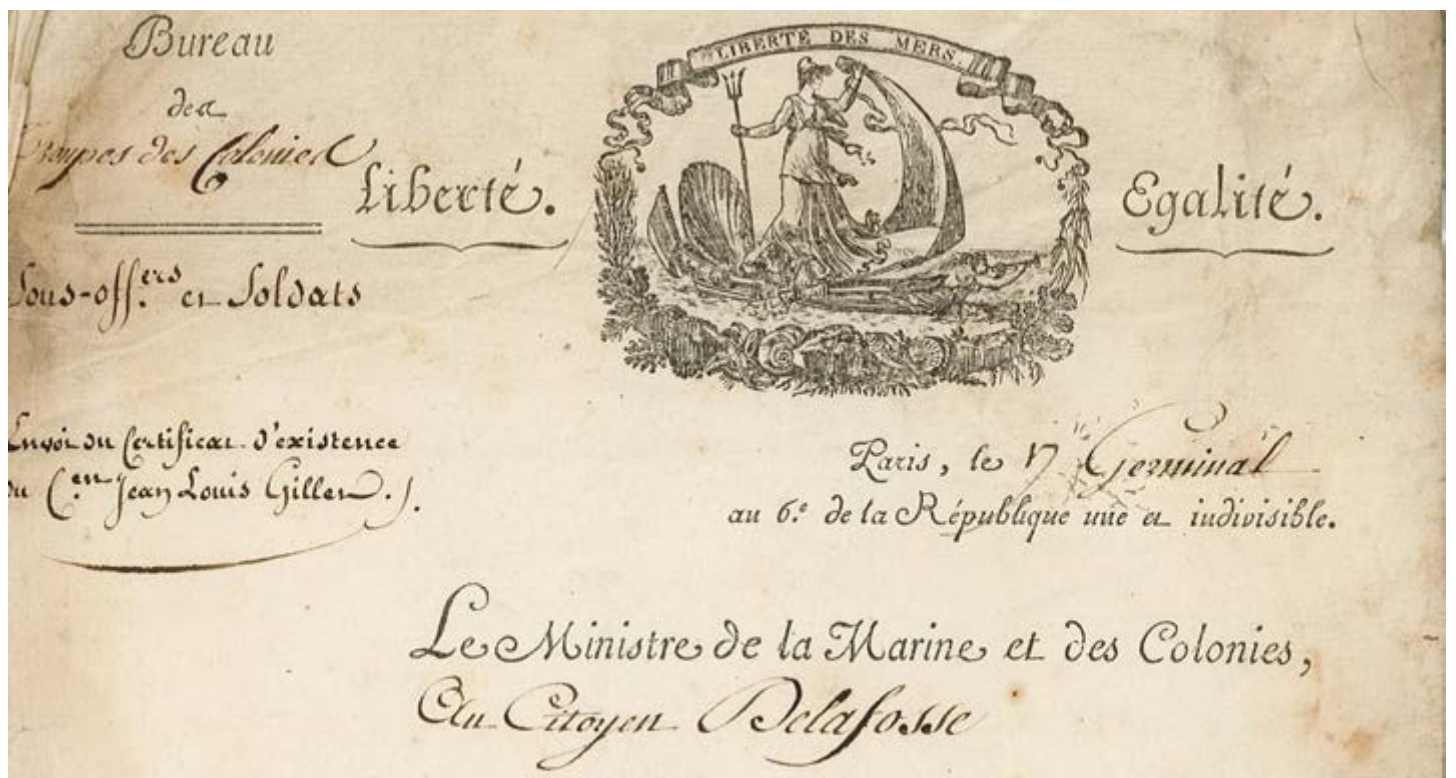 Bureau
des
Troupes des Colonies
Sous-off.ers et Soldats
Envoi du Certificat d'existence
du C.en Jean Louis Gillet.
LIBERTÉ DES MERS.
Liberté.
Egalité.
Paris, le 17 Germinal
au 6.e de la République une et indivisible.
Le Ministre de la Marine et des Colonies,
Au Citoyen Delafosse